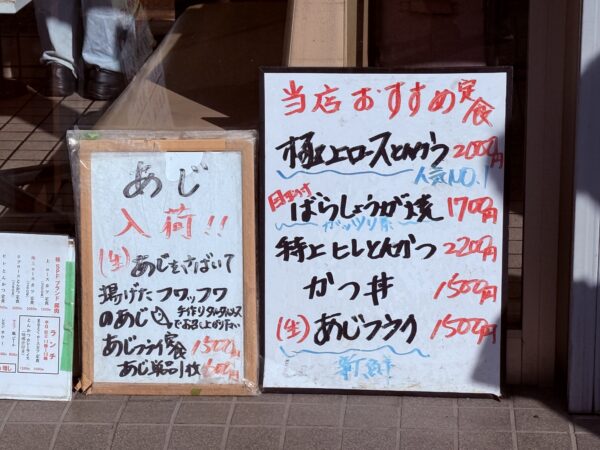 当店おすすめ定食
極上ロースとんかつ 2000円
人気NO.1
目玉付
ばらしょうが焼 1700円
ガッツリ系
特上ヒレとんかつ 2200円
かつ丼 1500円
(生)あじフライ 1500円
新鮮
あじ
入荷!!
(生)あじをさばいて
揚げたフワッフワ
のあじ 手作りタルタルソース
でお召し上がり下さい
あじフライ定食 1500円
あじ単品1枚 600円
ランチ